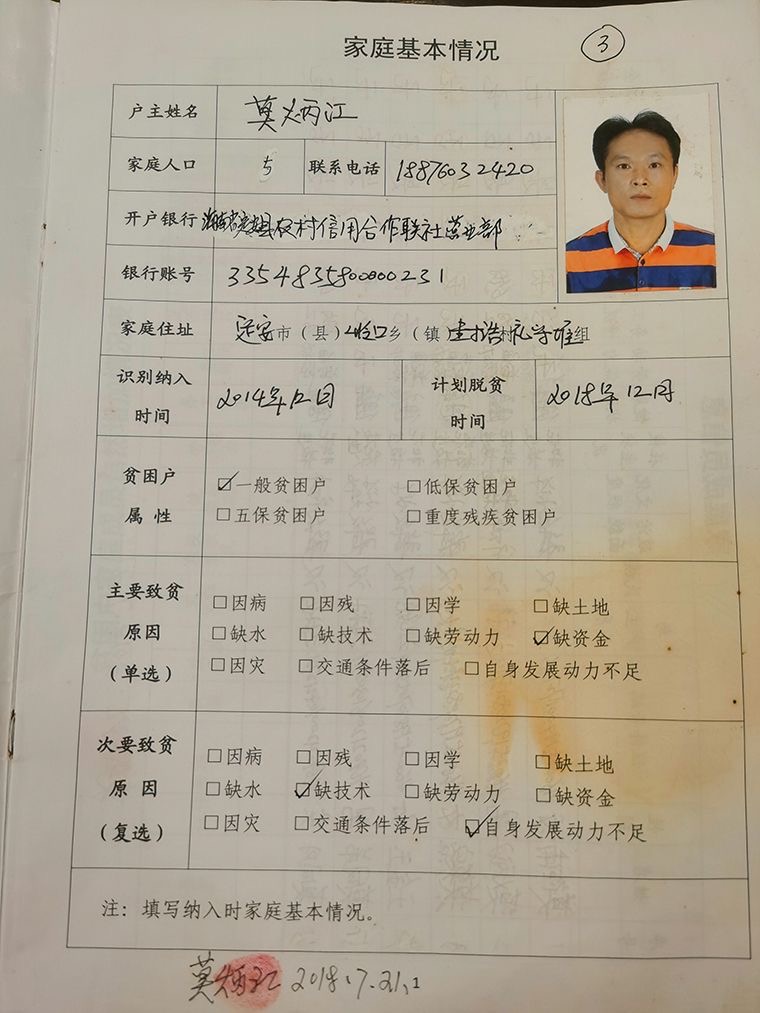 家庭基本情况 ③
户主姓名 莫炳江
家庭人口 5 联系电话 18876032420
开户银行 海南省定安县农村信用合作联社营业部
银行账号 3354835800000231
家庭住址 定安市（县）岭口乡（镇）封浩村礼学堆组
识别纳入时间 2014年12月 计划脱贫时间 2018年12月
贫困户属性
☑一般贫困户 □低保贫困户
□五保贫困户 □重度残疾贫困户
主要致贫原因（单选）
□因病 □因残 □因学 □缺土地
□缺水 □缺技术 □缺劳动力 ☑缺资金
□因灾 □交通条件落后 □自身发展动力不足
次要致贫原因（复选）
□因病 □因残 □因学 □缺土地
□缺水 ☑缺技术 □缺劳动力 □缺资金
□因灾 □交通条件落后 ☑自身发展动力不足
注：填写纳入时家庭基本情况。
莫炳江 2018.7.21